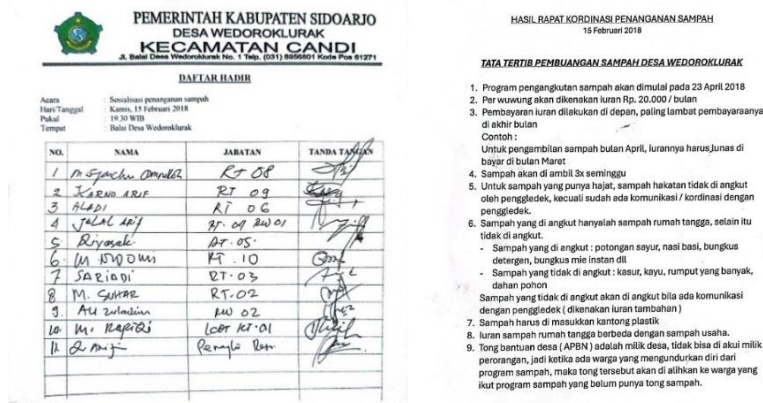 PEMERINTAH KABUPATEN SIDOARJO
DESA WEDOROKLURAK
KECAMATAN CANDI
Jl. Balai Desa Wedoroklurak No. 1 Telp. (031) 8956801 Kode Pos 61271
DAFTAR HADIR
Acara : Sosialisasi penanganan sampah
Hari/Tanggal : Kamis, 15 Februari 2018
Pukul : 19.30 WIB
Tempat : Balai Desa Wedoroklurak
NO. NAMA JABATAN TANDA TANGAN
1 RT 08
2 KARNO ARIF RT 09
3 ALADI RT 06
4 JALAL RT. 04 RW 01
5 Riyasak RT. 05.
6. M RT. 10
7 SARIADI RT. 03
8 M. SUHAR RT. 02
9. Ali RW 02
10. M. RT. 01
11.
HASIL RAPAT KORDINASI PENANGANAN SAMPAH
15 Februari 2018
TATA TERTIB PEMBUANGAN SAMPAH DESA WEDOROKLURAK
1. Program pengangkutan sampah akan dimulai pada 23 April 2018
2. Per wuwung akan dikenakan iuran Rp. 20.000 / bulan
3. Pembayaran iuran dilakukan di depan, paling lambat pembayaraanya
di akhir bulan
Contoh :
Untuk pengambilan sampah bulan April, iurannya harus,lunas di
bayar di bulan Maret
4. Sampah akan di ambil 3x seminggu
5. Untuk sampah yang punya hajat, sampah hakatan tidak di angkut
oleh penggledek, kecuali sudah ada komunikasi / kordinasi dengan
penggledek.
6. Sampah yang di angkut hanyalah sampah rumah tangga, selain itu
tidak di angkut.
- Sampah yang di angkut : potongan sayur, nasi basi, bungkus
detergen, bungkus mie instan dll
- Sampah yang tidak di angkut : kasur, kayu, rumput yang banyak,
dahan pohon
Sampah yang tidak di angkut akan di angkut bila ada komunikasi
dengan penggledek ( dikenakan iuran tambahan )
7. Sampah harus di masukkan kantong plastik
8. Iuran sampah rumah tangga berbeda dengan sampah usaha.
9. Tong bantuan desa ( APBN ) adalah milik desa, tidak bisa di akui milik
perorangan, jadi ketika ada warga yang mengundurkan diri dari
program sampah, maka tong tersebut akan di alihkan ke warga yang
ikut program sampah yang belum punya tong sampah.